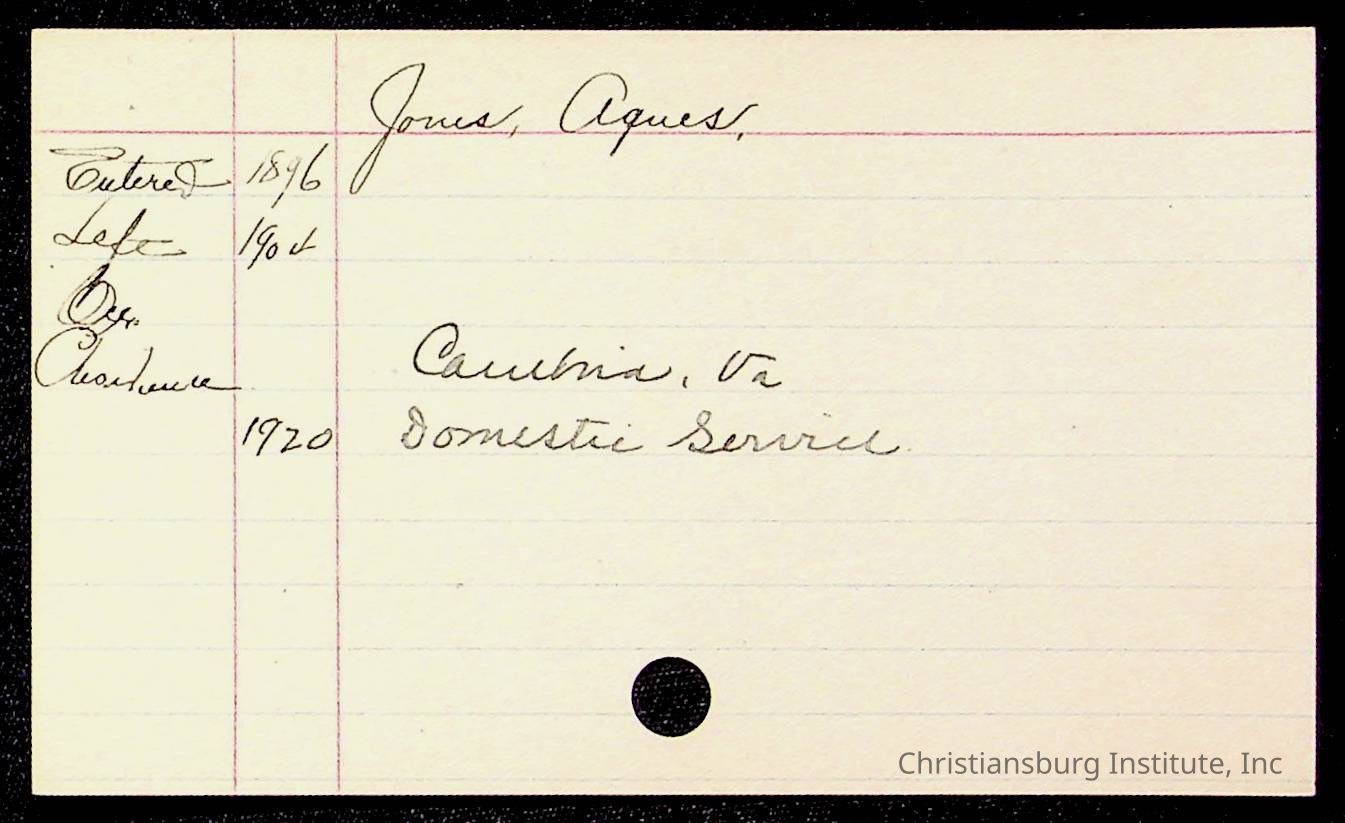 Jones, Agnes.
Entered 1896
Left 1904
Occ.
Cambria, Va
1920 Domestic Service
Christiansburg Institute, Inc